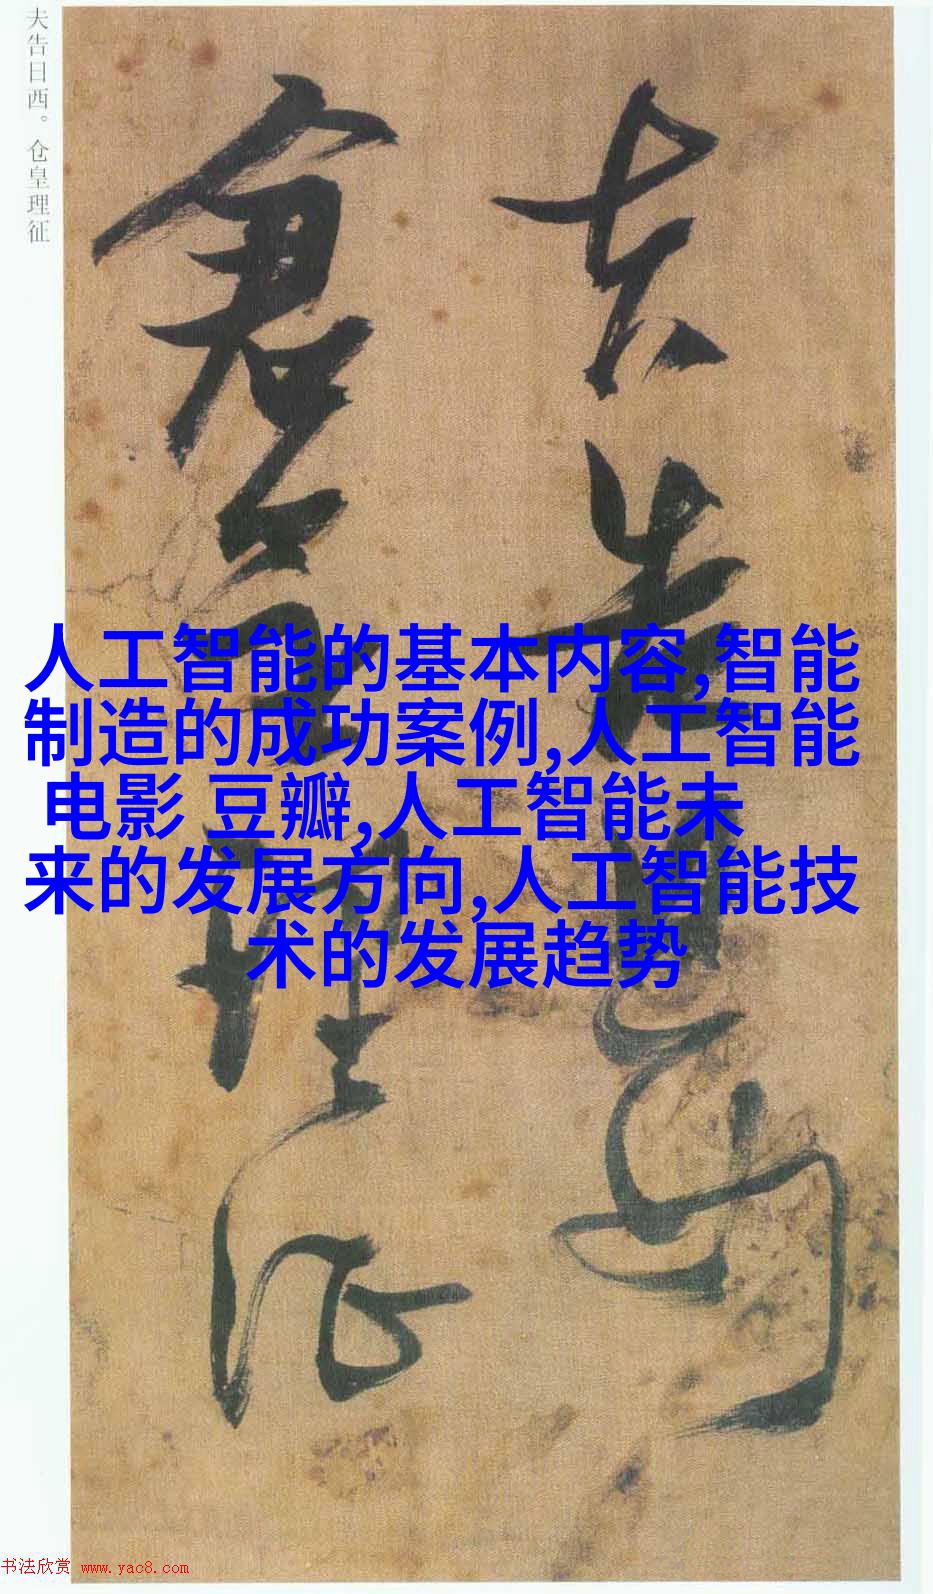 夫告日西。仓皇理征
夫告日西
倉皇理征
人工智能的基本内容,智能
制造的成功案例,人工智能
电影 豆瓣,人工智能未
来的发展方向,人工智能技
术的发展趋势
书法欣赏 www.yac8.com